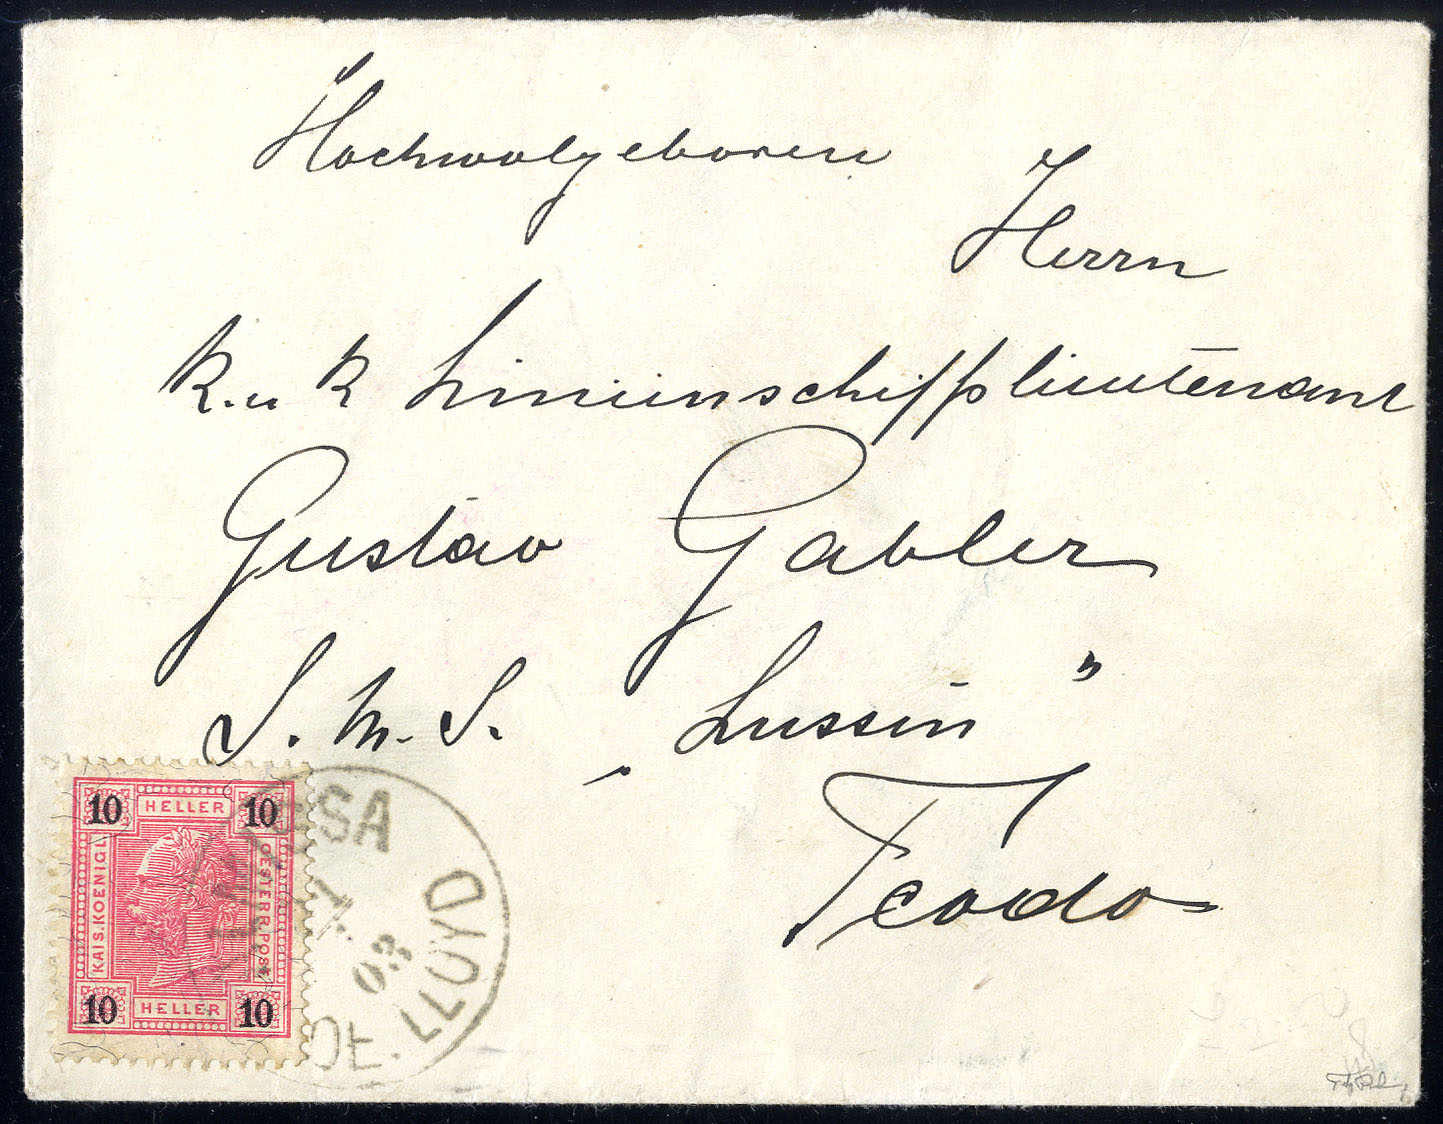 Hochwolgeboren
Herrn
k. u k Linienschiffslieutenant
Gustav Gabler
S. M. S. „Lussin"
Teodo
10 HELLER 10
KAIS. KOENIGL. OESTERR. POST
10 HELLER 10
OE. LLOYD
03